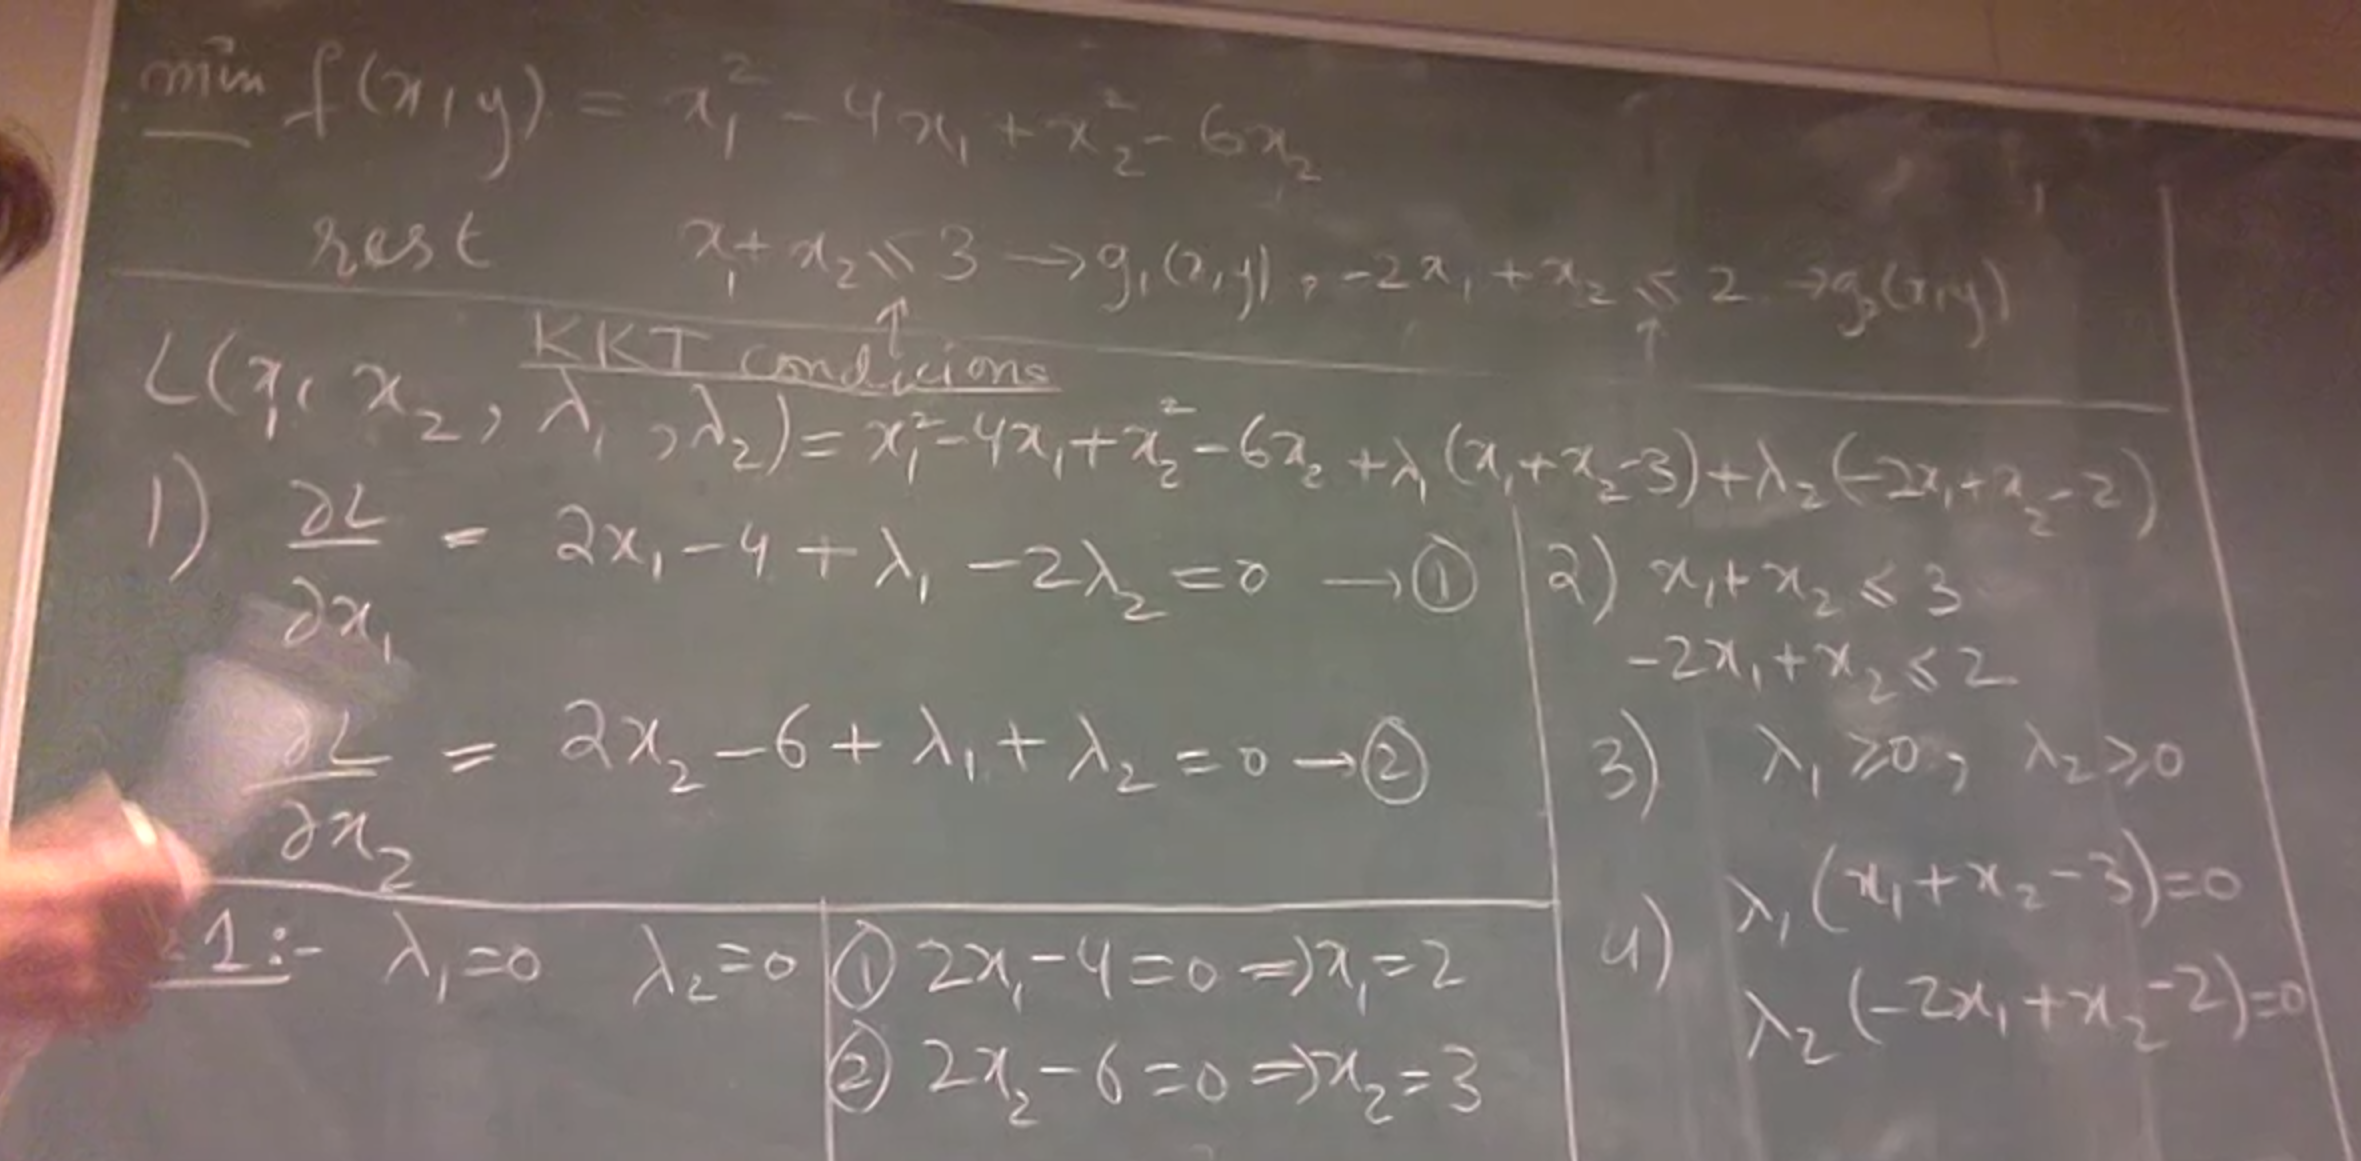 min f(x,y) = x₁² - 4x₁ + x₂² - 6x₂
rest x₁ + x₂ ≤ 3 → g₁(x,y), -2x₁ + x₂ ≤ 2 → g₂(x,y)
KKT condicions
L(x₁, x₂, λ₁, λ₂) = x₁² - 4x₁ + x₂² - 6x₂ + λ₁(x₁ + x₂ - 3) + λ₂(-2x₁ + x₂ - 2)
1) ∂L/∂x₁ = 2x₁ - 4 + λ₁ - 2λ₂ = 0 → ①
∂L/∂x₂ = 2x₂ - 6 + λ₁ + λ₂ = 0 → ②
2) x₁ + x₂ ≤ 3
-2x₁ + x₂ ≤ 2
3) λ₁ ≥ 0, λ₂ ≥ 0
4) λ₁(x₁ + x₂ - 3) = 0
λ₂(-2x₁ + x₂ - 2) = 0
1:- λ₁ = 0 λ₂ = 0
① 2x₁ - 4 = 0 ⇒ x₁ = 2
② 2x₂ - 6 = 0 ⇒ x₂ = 3